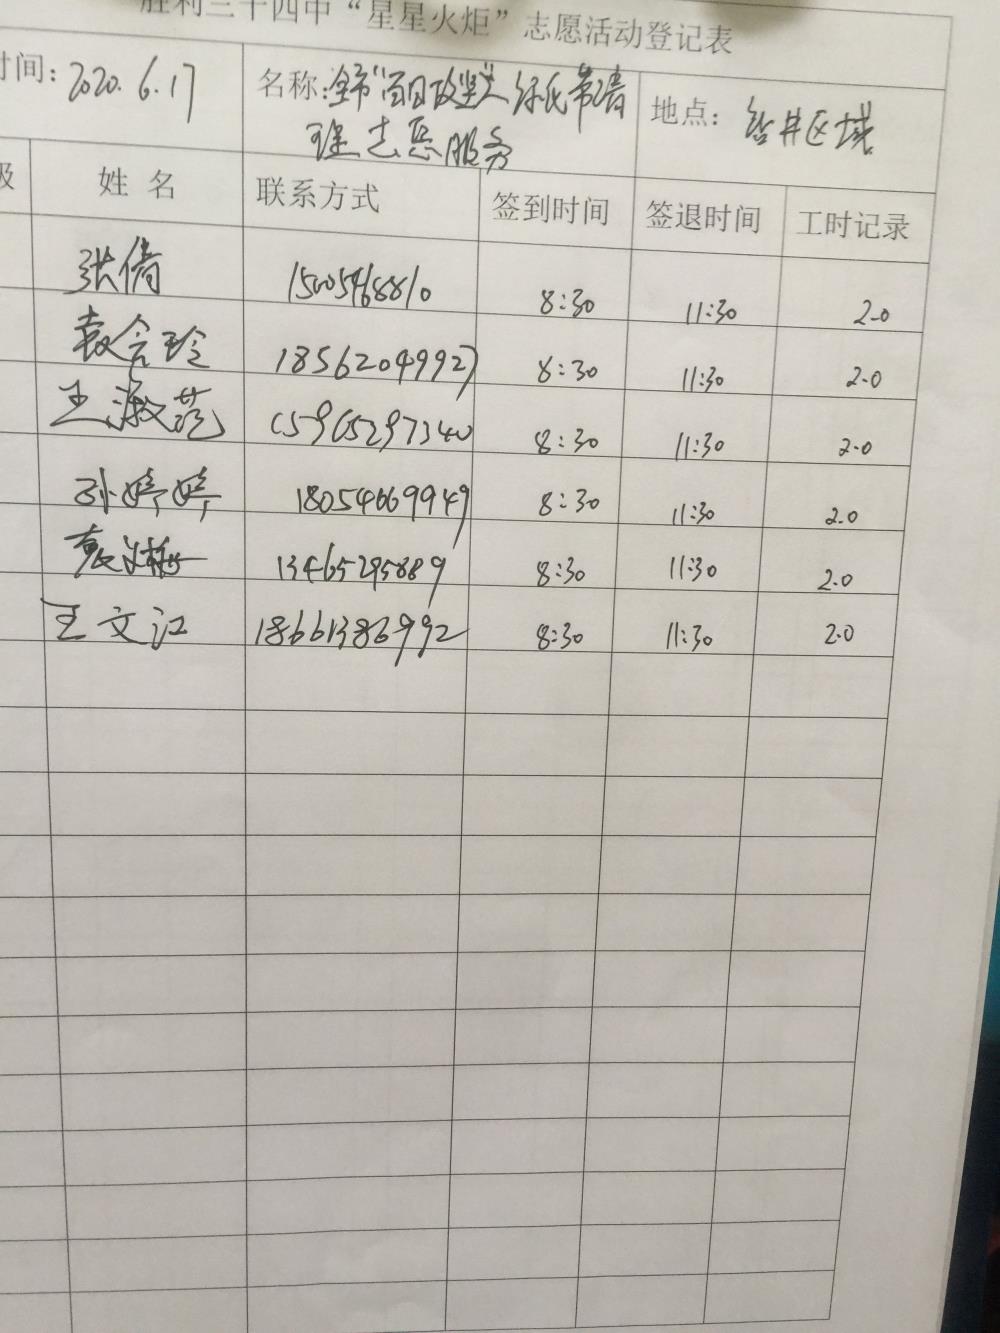 胜利三十四中“星星火炬”志愿活动登记表
时间: 2020.6.17 名称: 全市“百日攻坚” 地点: 钻井区域
志愿服务
级 姓名 联系方式 签到时间 签退时间 工时记录
张倩 15005468810 8:30 11:30 2.0
袁会玲 18562049927 8:30 11:30 2.0
王淑范 15965297340 8:30 11:30 2.0
孙婷婷 18054669949 8:30 11:30 2.0
13465295889 8:30 11:30 2.0
王文江 18661386992 8:30 11:30 2.0